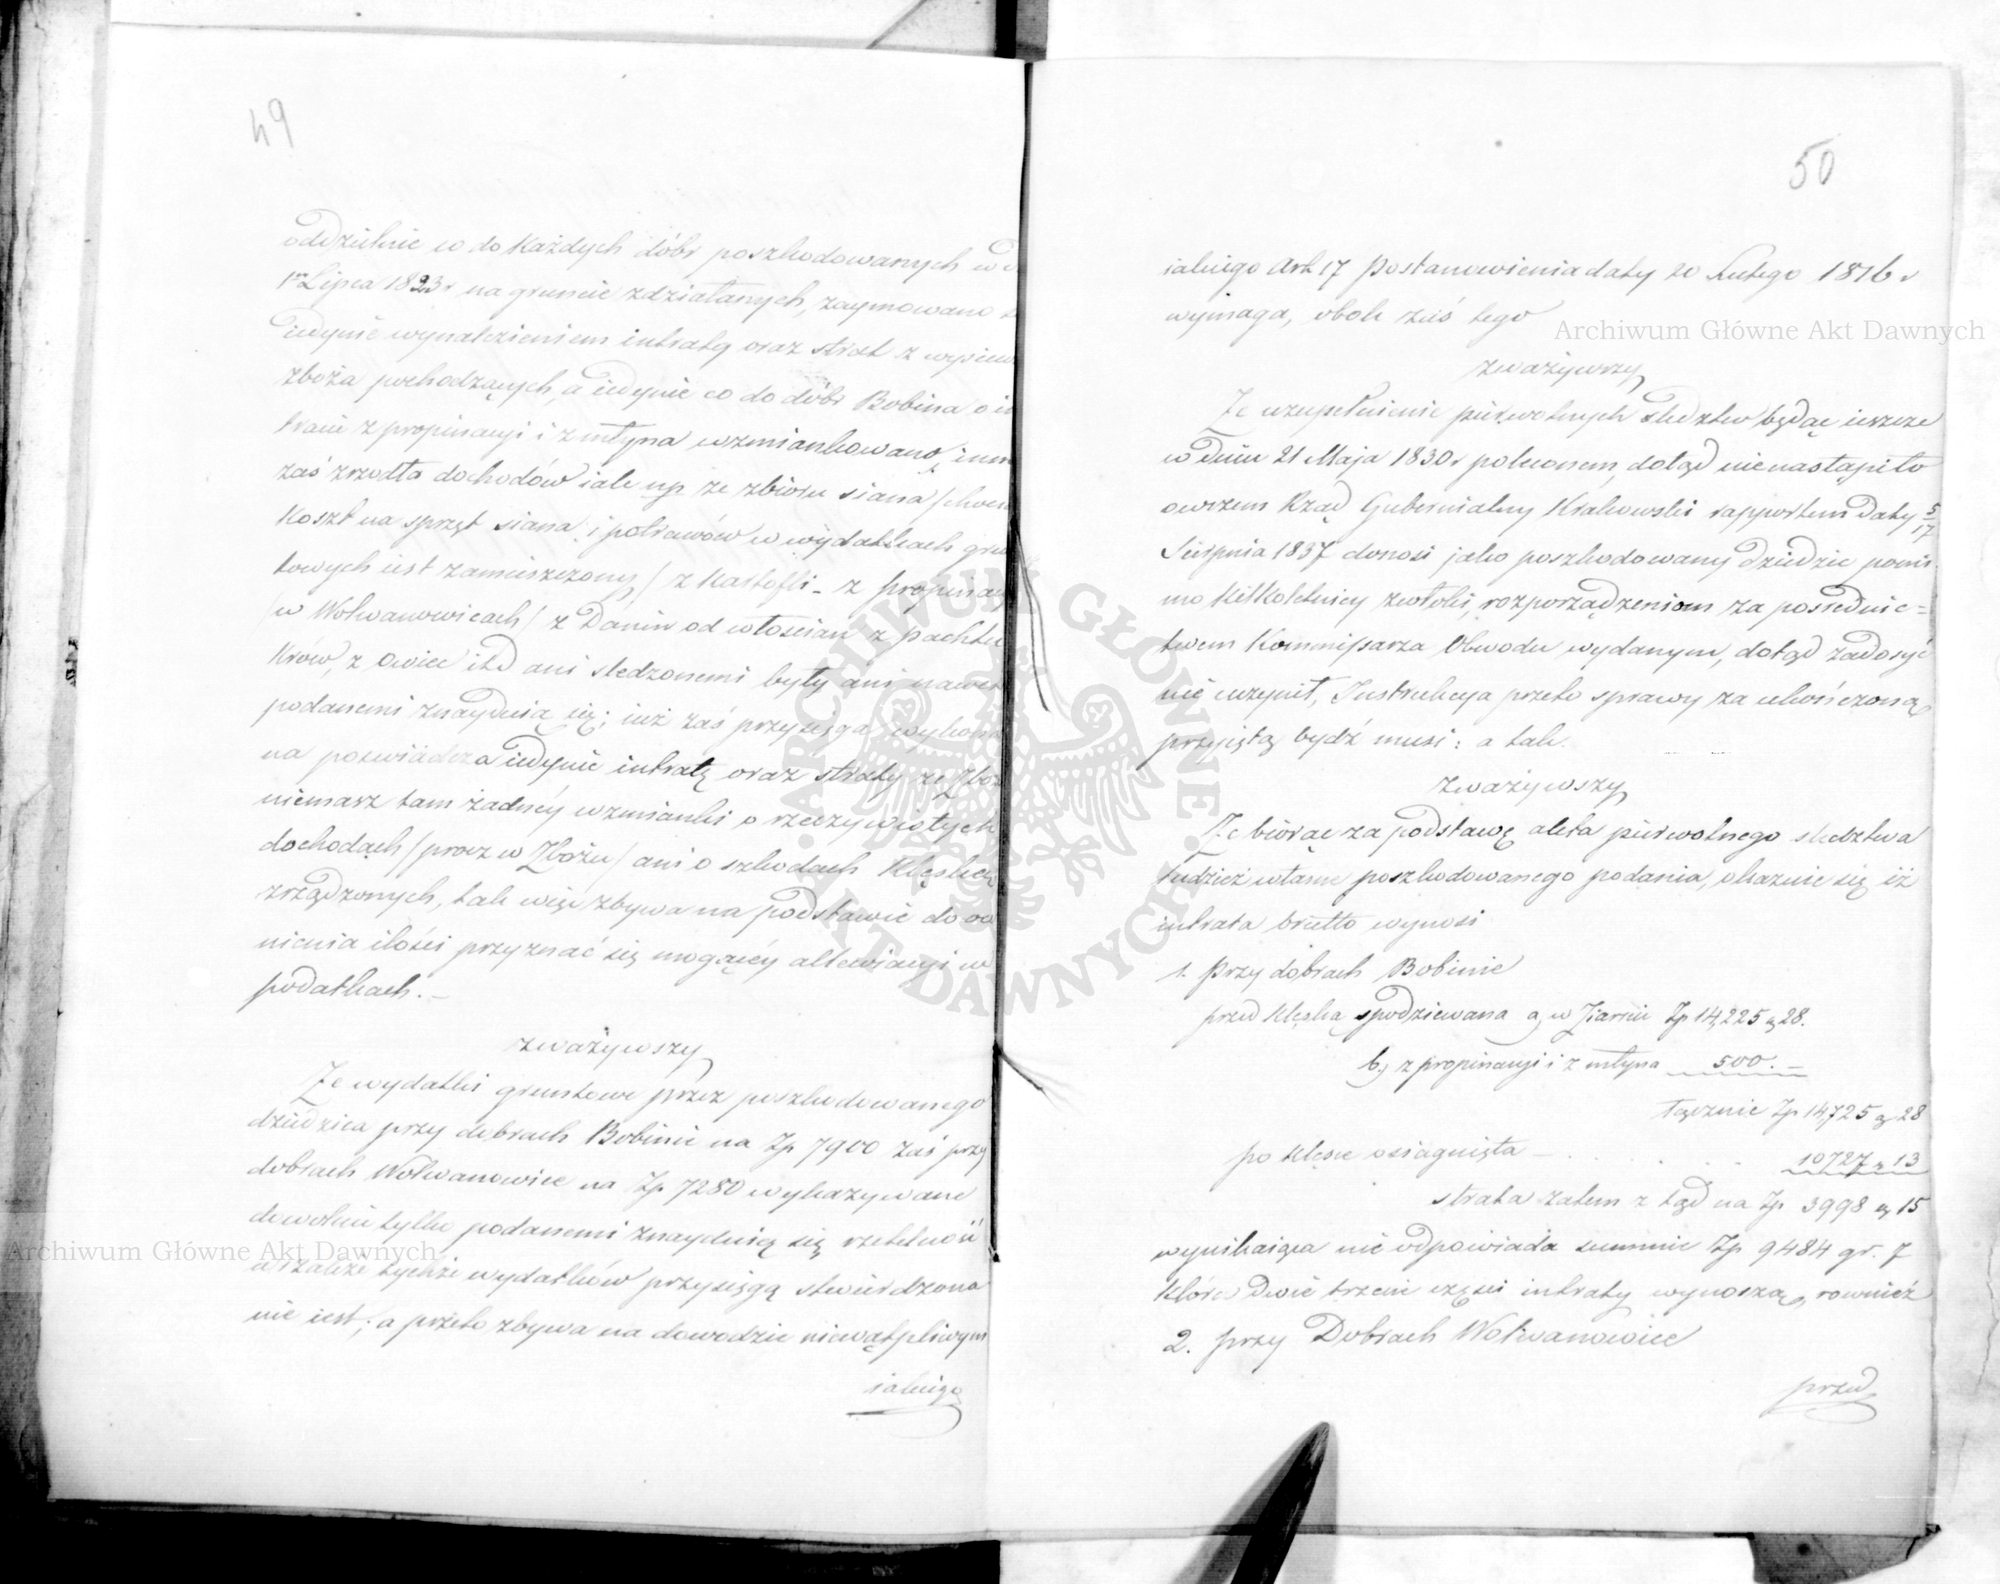 49
oddzielnie co do każdych dóbr poszkodowanych w d
1go Lipca 1823 r na gruncie zdziałanych, zaymowano się
iedynie wynalezieniem intraty oraz strat z wysiewu
zboża pochodzących, a iedynie co do dóbr Bobina o in
tracie z propinacyi i z młyna wzmiankowano, inne
zaś zrzodła dochodów iako np. ze zbioru siana /:
Koszt na sprzęt siana i potrawów w wydatkach grun
towych iest zamieszczony / z Kartofli - z propinacyi
/w Wolwanowicach/ z Danin od włościan z pachtu
Krow, z Owiec itd ani śledzonemi były ani nawet
podanemi znayduią się; iuż zaś przysięga wykona
na poświadcza iedynie intratę oraz straty ze Zboż
niemasz tam żadnéy wzmianki o rzeczywistych
dochodach /procz w Zbożu/ ani o szkodach Klęską
zrządzonych, tak więc zbywa na podstawie do oce
nienia ilości przyznać się mogącéy allewiacyi w
podatkach. -
zważywszy
Że wydatki gruntowe przez poszkodowanego
dziedzica przy dobrach Bobinie na Zp 7900 zaś przy
dobrach Wolwanowice na Zp 7280 wykazywane
dowolnie tylko podanemi znayduią się rzetelność
wszakże tychże wydatków przysięgą stwierdzona
nie iest; a przeto zbywa na dowodzie niewątpliwym
iakiego
50
iakiego Art 17 Postanowienia daty 20 Lutego 1816 r
wymaga, obok zaś tego
zważywszy
Że uzupełnienie pierwotnych śledztw będąc ieszcze
w dniu 21 Maja 1830 r polecone, dotąd nienastąpiło
owszem Rząd Gubernialny Krakowski rapportem daty 5/17
Sierpnia 1837 donosi jako poszkodowany dziedzic pomi
mo kilkoletniey zwłoki, rozporządzeniom za pośrednic=
twem Kommissarza Obwodu wydanym, dotąd zadosyć
nie uczynił, Instrukcya przeto sprawy za ukończoną
przyiętą bydź musi: a tak.
zważywszy
Że biorąc za podstawę akta pierwotnego śledztwa
tudzież własne poszkodowanego podania, okazuie się iż
intrata brutto wynosi
1. Przy dobrach Bobinie
przed klęską spodziewana a, w Ziarnie Zp 14,225 g 28.
b, z propinacyi i z młyna 500. -
łącznie Zp 14,725 g 28
po klęsce osiągnięta - . . . . . 10727 " 13
strata zatem z tąd na Zp 3998 g 15
wynikaiąca nie odpowiada summie Zp 9484 gr. 7
które dwie trzecie części intraty wynoszą, rownież
2. przy Dobrach Wolwanowice
przed
Archiwum Główne Akt Dawnych
Archiwum Główne Akt Dawnych
ARCHIWUM GŁÓWNE AKT DAWNYCH